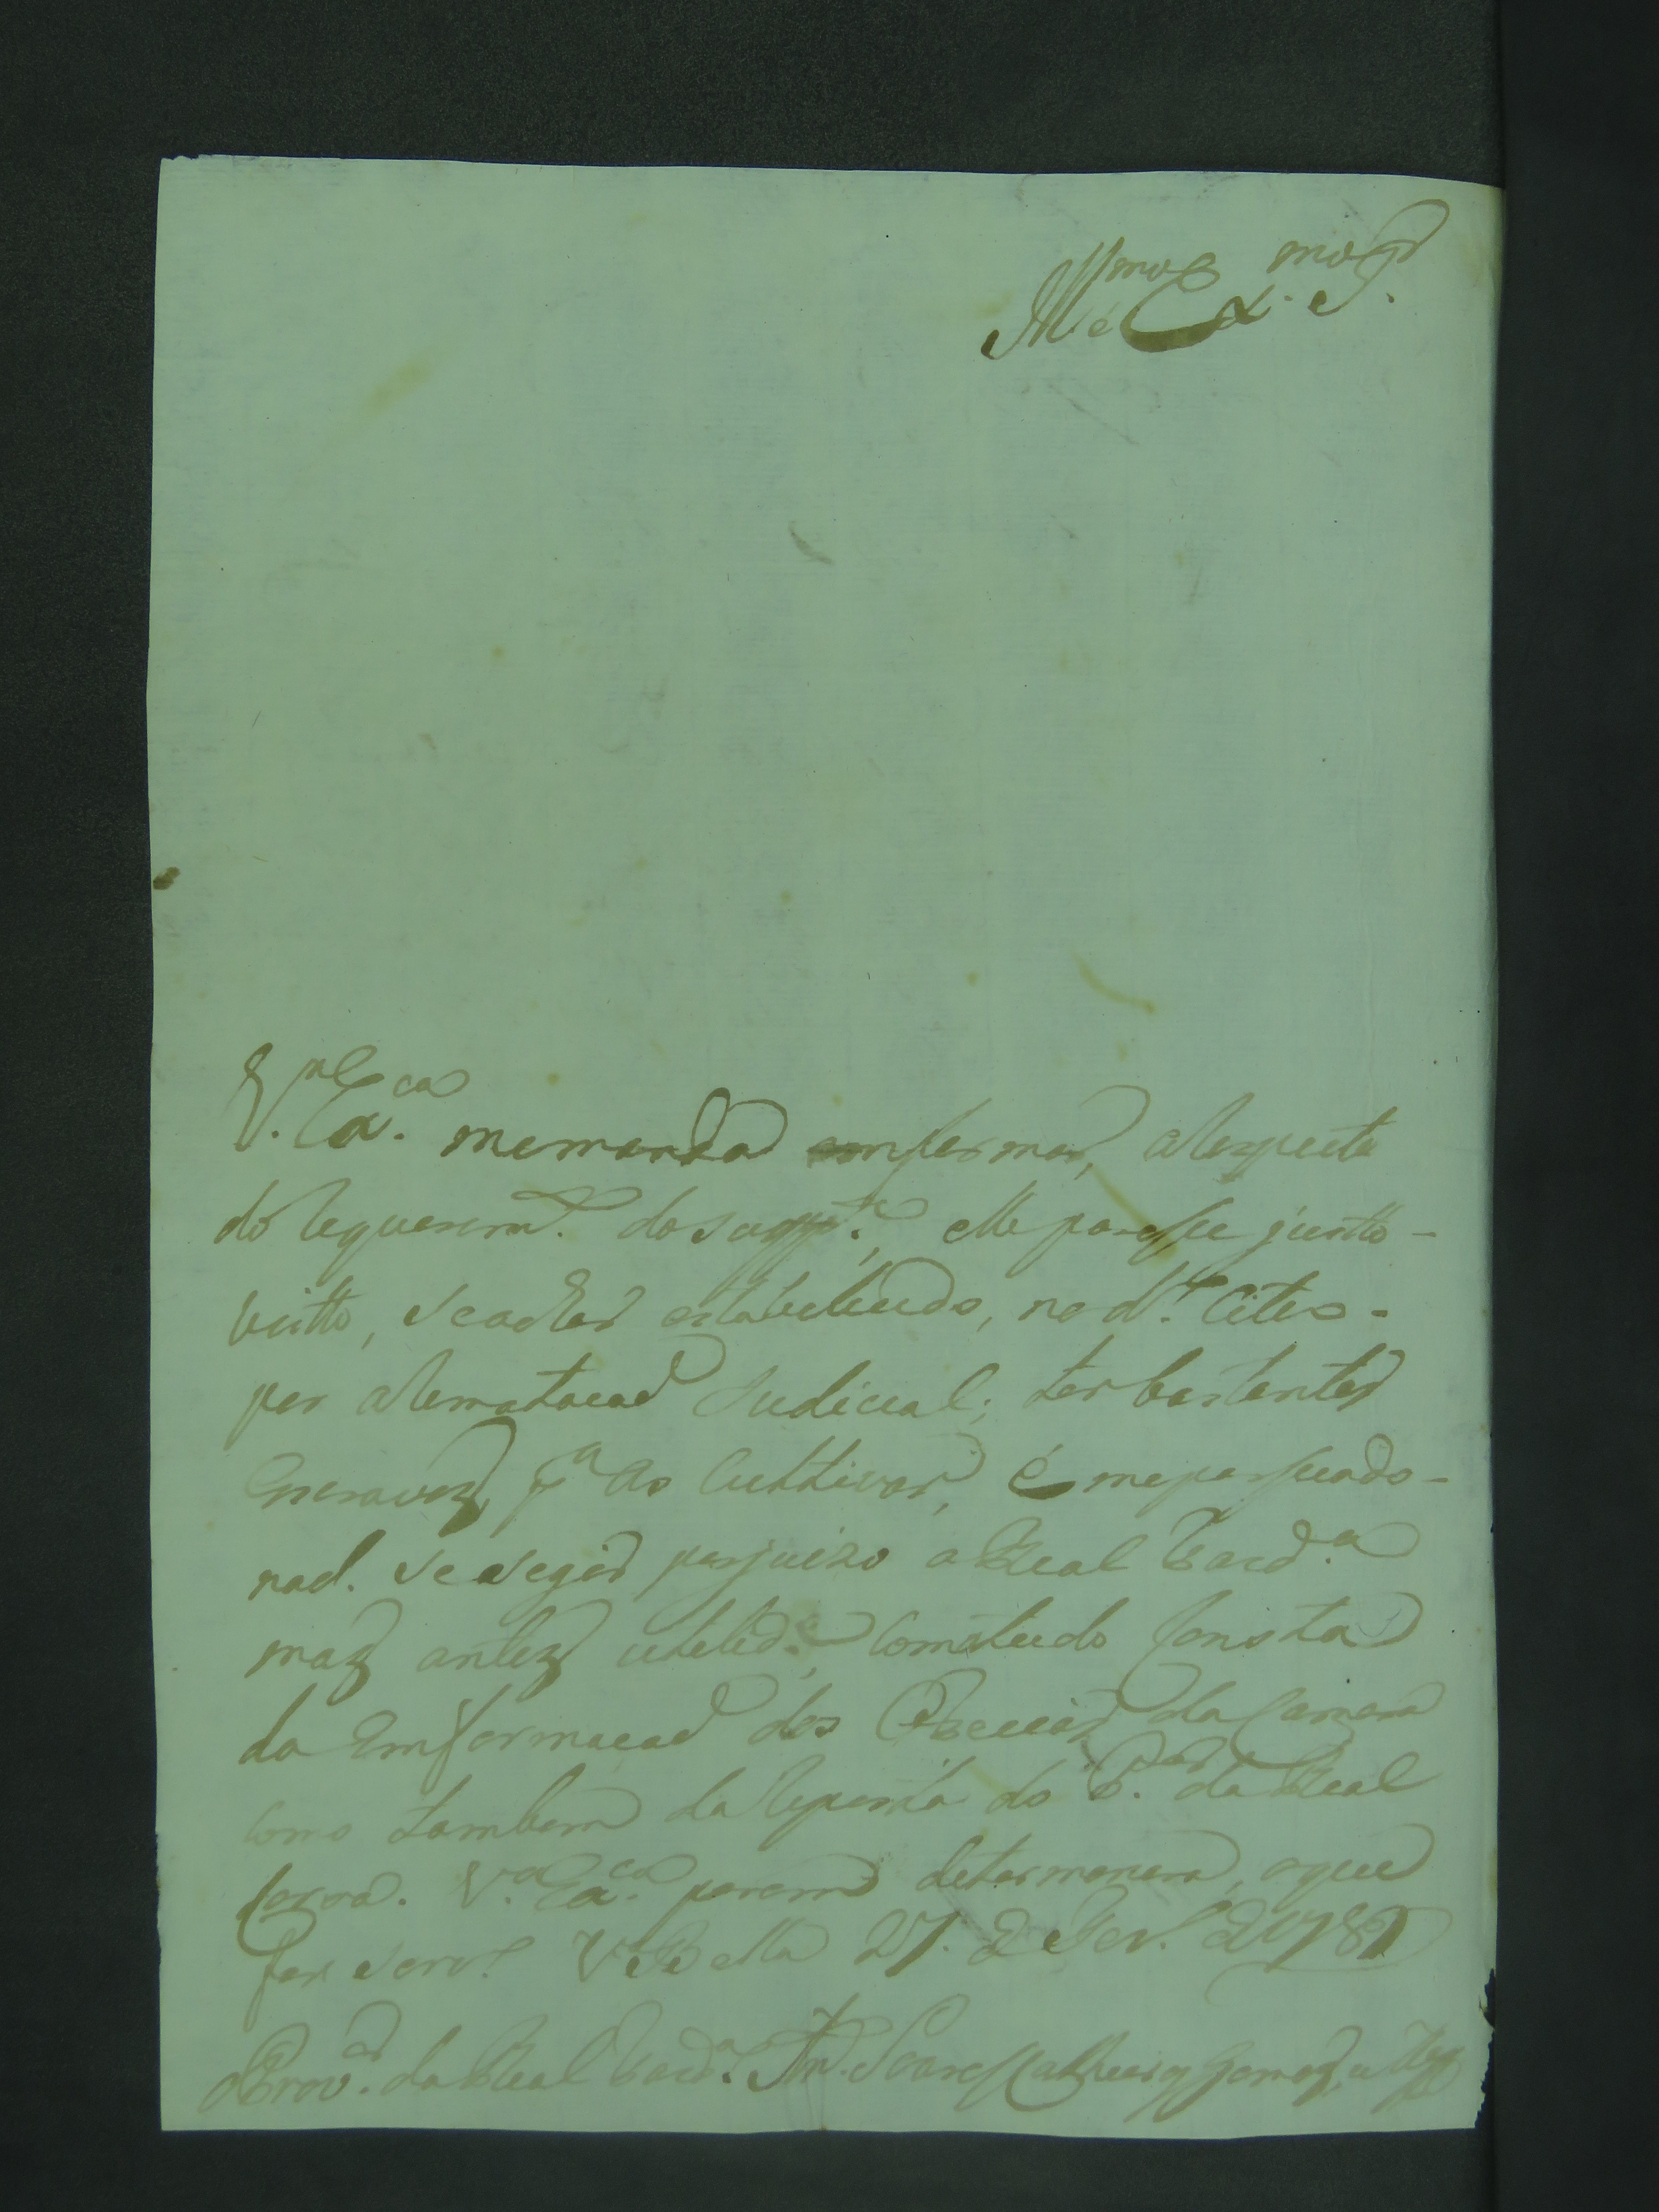 Illmo e Ex.mo Sr.
V. Ex.ca me manda emformar, a Respeito
do Requerim.to do supp.te elle paresse justo
visto, se achar estabelecido, no d.to Citio
por a Rematacaó Judicial; ter bastantes
Escravoz, p.a os Cultivar, e me parsuado
naó. se seger perjuizo a Real Fazd.a
maz antez utelid.e como tudo Consta
da Emformacaó dos da Camera
como tambem da Reposta do P.dor da Real
Coroa. V.a Ex.ca porem determenará, o que
for serv.o V.a Bella 27. de Fev.o de 1781
O Prov.or da Real Fazd.a Ant.o Soares Gomez